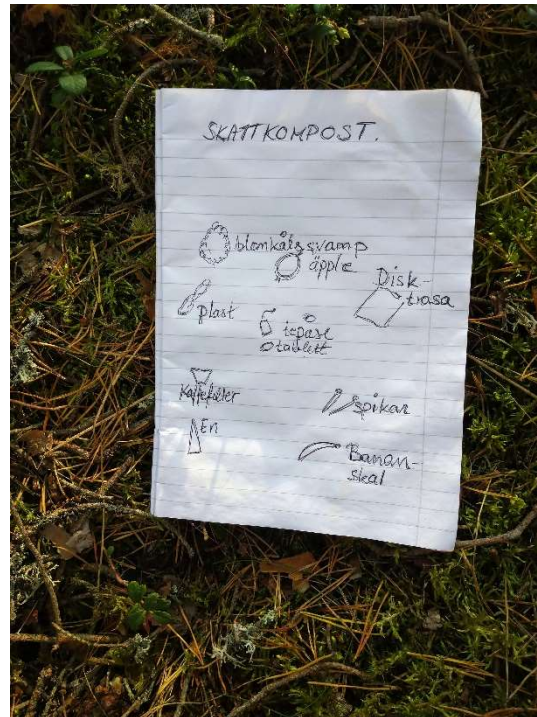 SKATTKOMPOST.
blomkålssvamp
äpple
Disk-
trasa
plast
tepåse
tablett
Kaffefilter
spikar
En
Banan-
skal